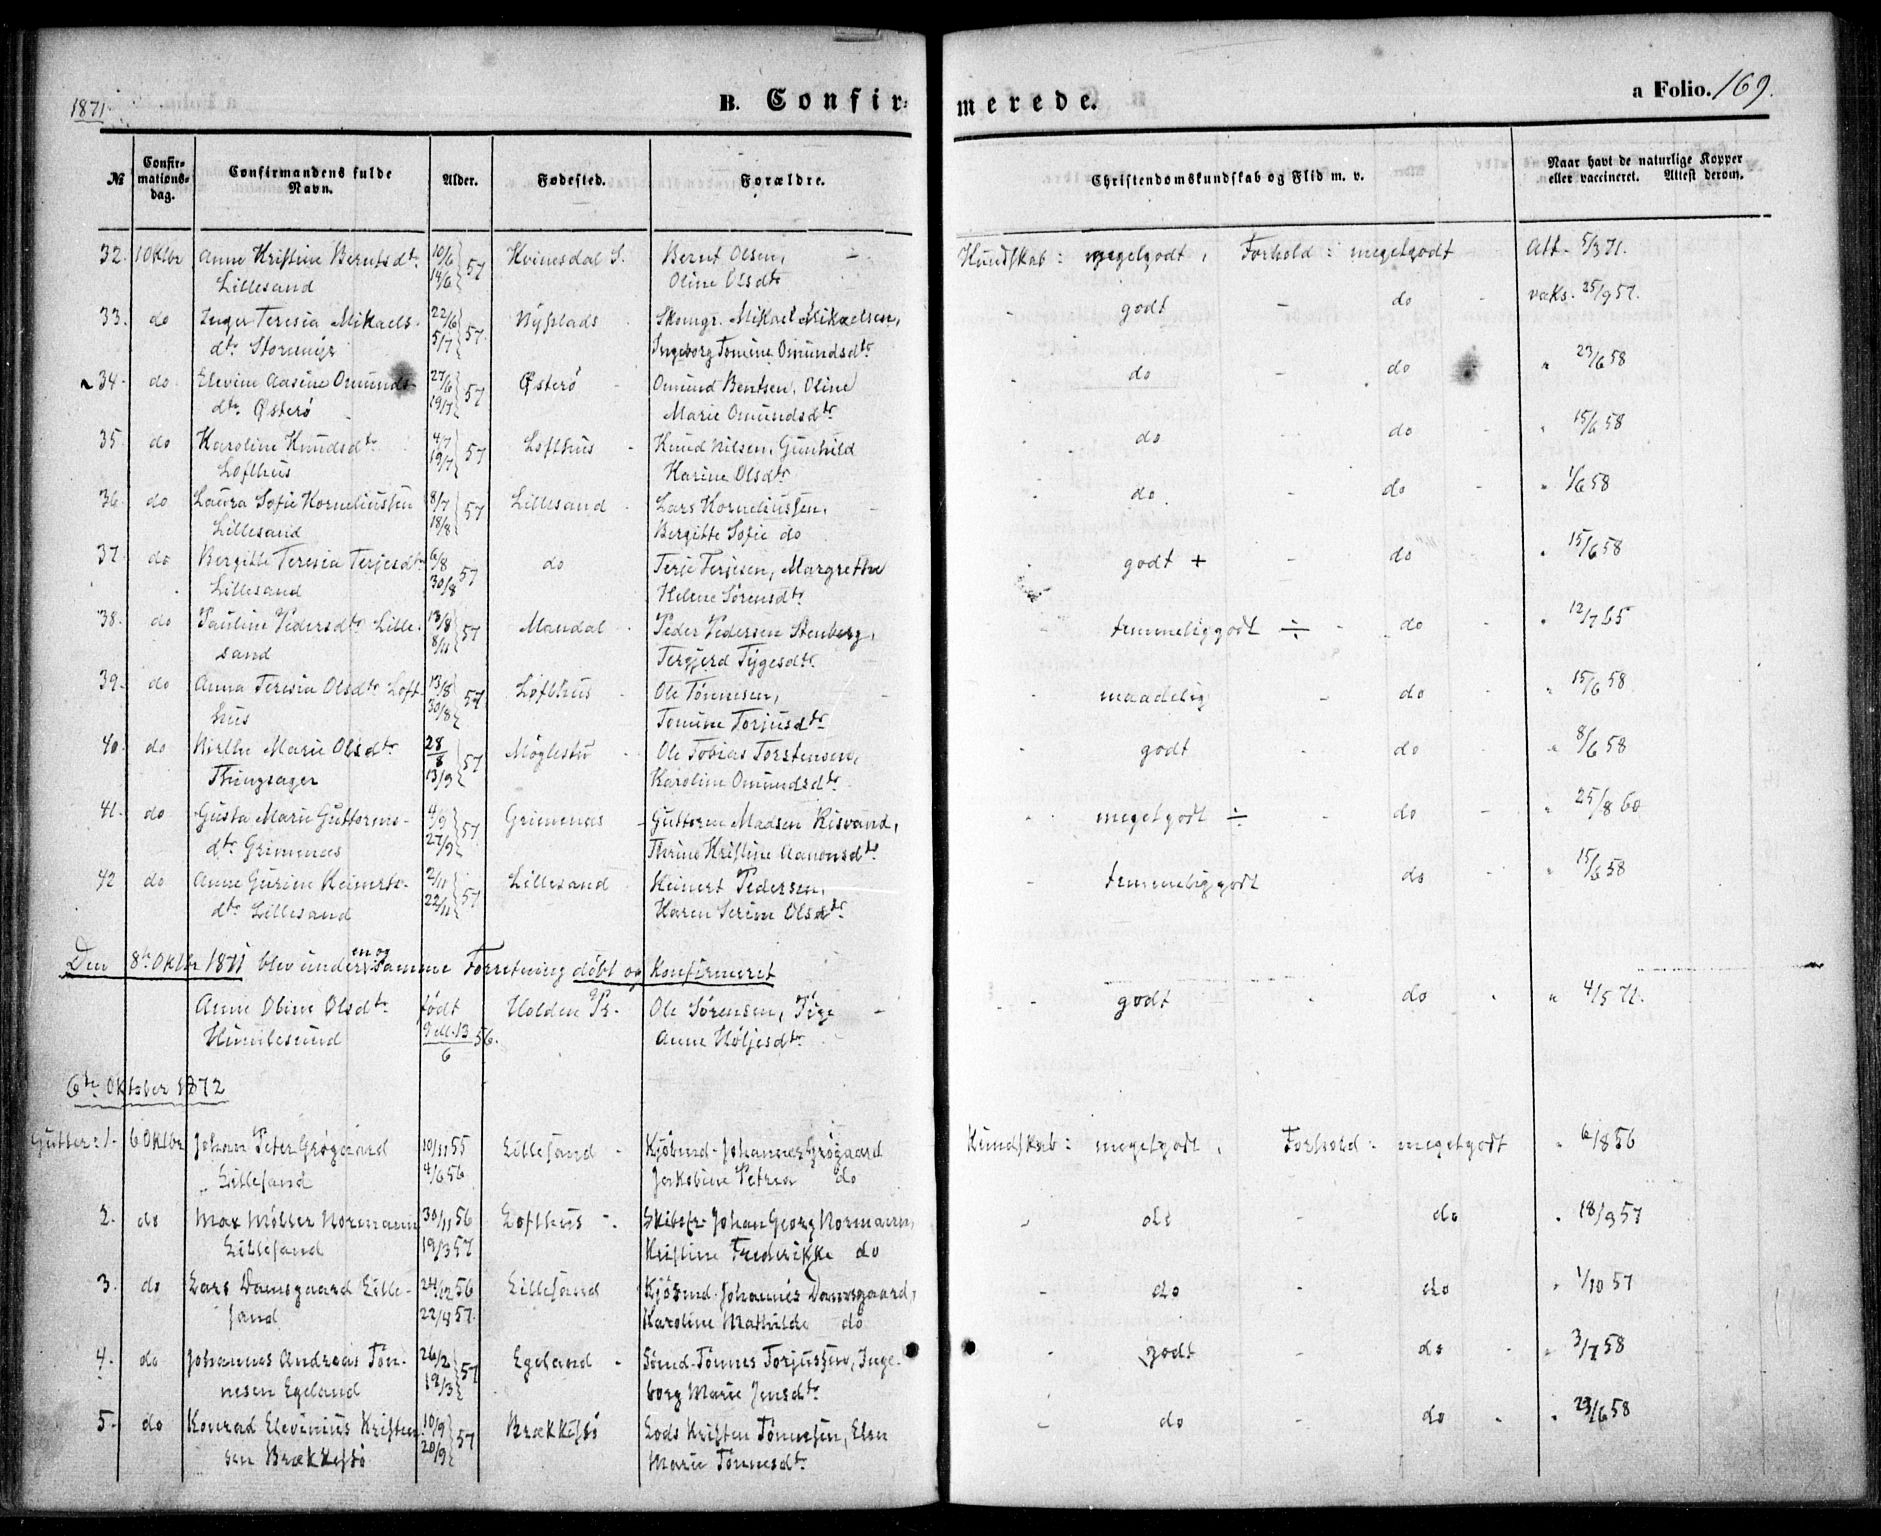 1871
B. Confir-
merede.
a Folio. 169.
№
Confir-
mations-
dag.
Confirmandens fulde
Navn.
Alder.
Fødested.
Forældre.
Christendomskundskab og Flid m. v.
Naar havt de naturlige Kopper
eller vaccineret. Attest derom.
32. 1 Oktbr Anne Kristine Berntsdtr 10/6 57 Kvinesdal S. Bernt Olsen, Kundskab: megetgodt, Forhold: megetgodt Att. 5/3 71.
Lillesand 14/6 Oline Olsdtr vaks. 25/9 57.
33. do Inger Teresia Mikaels- 22/6 57. Nÿplads Skomgr. Mikael Mikaelsen, godt - do
dtr Storemÿr 5/7 Ingeborg Tomine Omundsdtr
34. do. Elevine Aasine Omunds- 27/6 57 Østerö Omund Bentsen, Oline do - do " 23/6 58
dtr Østerö 19/7 Marie Omundsdtr
35. do Karoline Knudsdtr 4/7 57 Lofthus - Knud Nilsen, Gunhild do do " 15/6 58
Lofthus 19/7 Karine Olsdtr
36. do Laura Sofie Korneliussen 8/7 57 Lillesand Lars Korneliussen, do. - do " 1/6 58
Lillesand 18/8 Bergitte Sofie do
37. do Bergitte Teresia Terjesdtr 6/8 57 do Terje Terjesen, Margrethe godt + - do " 15/6 58
Lillesand 30/8 Helene Sörensdtr
38. do Pauline Pedersdtr Lille- 13/8 57 Mandal Peder Pedersen Stenberg, temmeliggodt ÷ - do " 12/7 65
sand 8/11 Tergjerd Tÿgesdtr
39. do Anna Teresia Olsdtr Loft- 13/8 57 Løfthus Ole Tönnesen, maadelig - do " 15/6 58
hus 30/8 Tomine Torjusdtr
40. do Mirthe Marie Olsdtr 28/8 57 Møglestu Ole Tobias Torstensen, godt - do " 8/6 58
Thingsager 13/9 Karoline Omundsdtr
41. do Gusta Marie Guttorms- 4/9 57. Grimenes Guttorm Madsen Risvand, megetgodt ÷ do - " 25/8 60
dtr Grimenes 27/9 Thrine Kristine Aanonsdtr
42 do Anne Gurine Reinerts- 2/11 57 Lillesand Reinert Pedersen, temmeliggodt do " 15/6 58
dtr Lillesand 22/11 Karen Serine Olsdtr
Den 8de Oktbr 1871 blev under en og samme Forretning døbt og Konfirmeret
Anne Oline Olsdtr født Holden Pr. Ole Sørensen, Tÿge godt do " 4/5 71.
Humlesund 13/6 56. Anne Höljesdtr
6te Oktober 1872
Gutter: 1. 6 Oktbr Johan Peter Grøgaard 10/11 55 Lillesand - Kjöbmd. Johannes Grøgaard Kundskab: megetgodt, Forhold: megetgodt " 6/8 56
Lillesand 4/6 56 Jakobine Petrea do
2. do Max Møller Normann 30/11 56 Lofthus Skibsfr. Johan Georg Normann, do - do " 18/9 57
Lillesand 19/3 57 Kristine Frederikke do
3. do Lars Damsgaard Lille- 24/12 56 Lillesand Kjöbmd. Johannes Damsgaard, do - do " 1/10 57
sand 22/8 57. Karoline Mathilde do
4. do Johannes Andreas Tön- 26/2 57 Egeland - Sömd. Tönnes Torjussen, Inge- godt - do " 3/7 58
nesen Egeland 19/3 borg Marie Jensdtr
5. do Konrad Elevinius Kristen- 10/9 57 Brækkesö Lods Kristen Tönnesen, Elen do - do " 23/6 58
sen Brækkesö 20/9 Marie Tönnesdtr